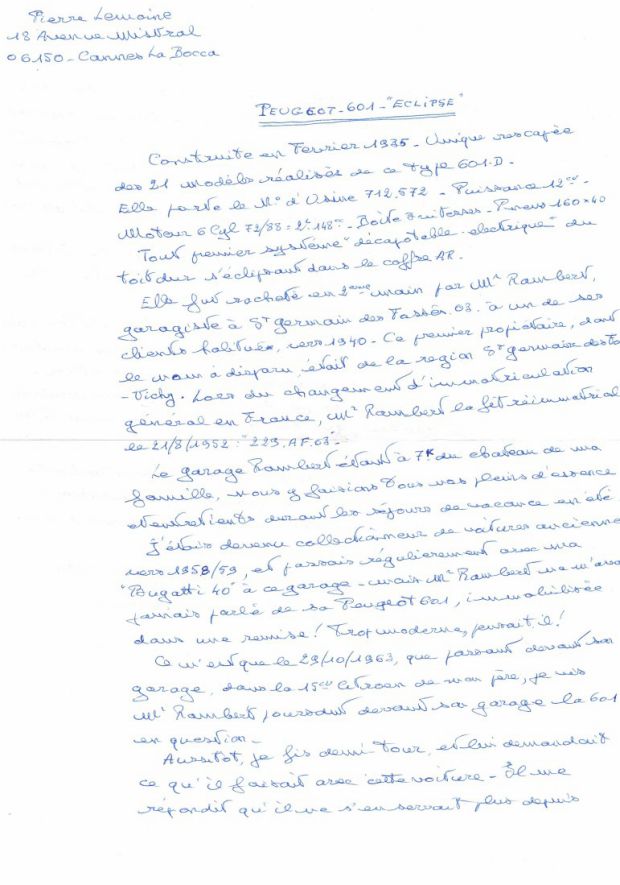 Pierre Lemoine
18 Avenue Mistral
06150 - Cannes La Bocca
PEUGEOT - 601 - "ECLIPSE"
Construite en Fevrier 1935 - Unique rescapée
des 21 modèles réalisés de ce type 601.D -
Elle porte le N° d'Usine 712.572 - Puissance 12cv -
Moteur 6 Cyl 72/88 = 2l.148cc - Boite 3 vitesses - Pneus 160 x 40
Tout premier système "décapotable - electrique" du
toit dur s'éclipsant dans le coffre AR.
Elle fut racheté en 2ème main par Mr Rambert,
garagiste à St germain des Fossés. 03. à un de ses
clients habitués, vers 1940 - Ce premier propiétaire, dont
le nom à disparu, était de la region St germain des Fo
- Vichy. Lors du changement d'immatriculation
général en France, Mr Rambert la fit réimmatricul
le 21/8/1952 : "229.AF.03".
Le garage Rambert étant à 7K du chateau de ma
famille, nous y faisions tous nos pleins d'essence
et entretients durant les séjours de vacance en été
J'étais devenu collectionneur de voitures ancienne
vers 1958/59, et passais régulierement avec ma
"Bugatti 40" à ce garage - mais Mr Rambert ne m'ava
jamais parlé de sa Peugeot 601, immobilisée
dans une remise ! Trop moderne, pensait, il !
Ce n'est que le 29/10/1963, que passant devant son
garage, dans la 15cv Citroen de mon père, je vis
Mr Rambert poussant devant son garage la 601
en question -
Aussitot, je fis demi-tour, et lui demandait
ce qu'il faisait avec cette voiture - Il me
répondit qu'il ne s'en servait plus depuis